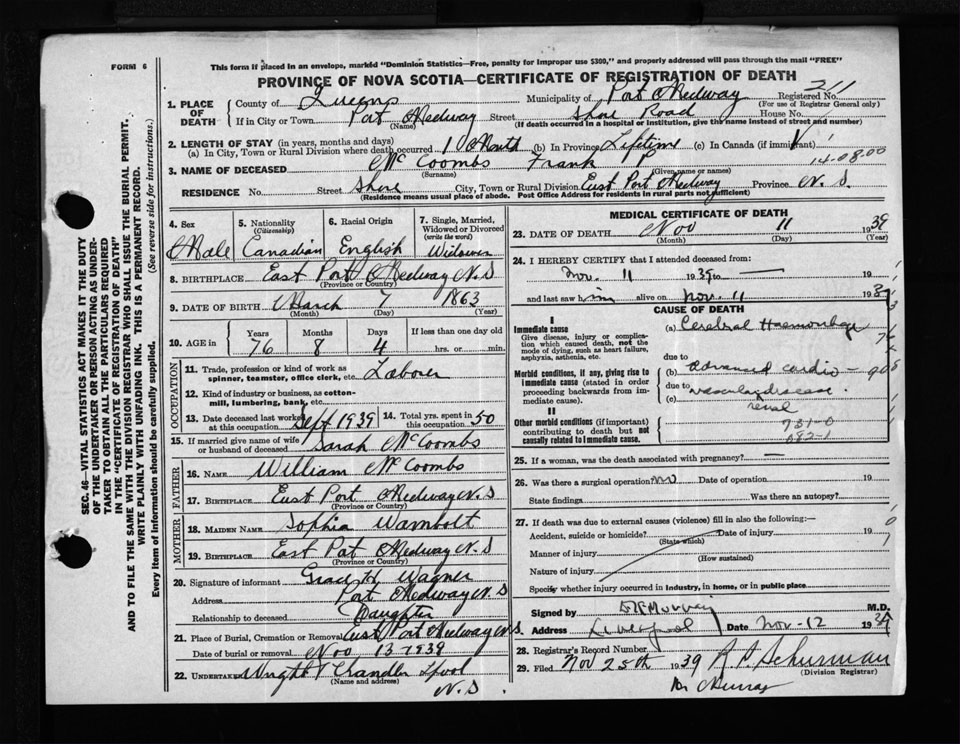 FORM 6
This form if placed in an envelope, marked "Dominion Statistics—Free, penalty for improper use $300," and properly addressed will pass through the mail "FREE"
PROVINCE OF NOVA SCOTIA—CERTIFICATE OF REGISTRATION OF DEATH
211
1. PLACE OF DEATH County of Queens Municipality of Port Medway Registered No.
(For use of Registrar General only)
If in City or Town Port Medway Street Shore Road House No.
(Name) (If death occurred in a hospital or institution, give the name instead of street and number)
2. LENGTH OF STAY (in years, months and days)
(a) In City, Town or Rural Division where death occurred 1 Month (b) In Province Lifetime (c) In Canada (if immigrant)
14-08.00
3. NAME OF DECEASED McCoombs Frank P
(Surname) (Given name or names)
RESIDENCE No. Street Shore City, Town or Rural Division East Port Medway Province N.S.
(Residence means usual place of abode. Post Office Address for residents in rural parts not sufficient)
SEC. 46—VITAL STATISTICS ACT MAKES IT THE DUTY
OF THE UNDERTAKER OR PERSON ACTING AS UNDER-
TAKER TO OBTAIN ALL THE PARTICULARS REQUIRED
IN THE "CERTIFICATE OF REGISTRATION OF DEATH"
AND TO FILE THE SAME WITH THE DIVISION REGISTRAR WHO SHALL ISSUE THE BURIAL PERMIT.
WRITE PLAINLY WITH UNFADING INK. THIS IS A PERMANENT RECORD.
Every item of information should be carefully supplied. (See reverse side for instructions.)
4. Sex Male
5. Nationality (Citizenship) Canadian
6. Racial Origin English
7. Single, Married, Widowed or Divorced (write the word) Widower
8. BIRTHPLACE East Port Medway N.S
(Province or Country)
9. DATE OF BIRTH March 7 1863
(Month) (Day) (Year)
10. AGE in Years 76 Months 8 Days 4 If less than one day old
hrs. or min.
OCCUPATION
11. Trade, profession or kind of work as spinner, teamster, office clerk, etc. Laborer
12. Kind of industry or business, as cotton-mill, lumbering, bank, etc.
13. Date deceased last worked at this occupation Sept 1939 14. Total yrs. spent in this occupation 50
15. If married give name of wife or husband of deceased Sarah McCoombs
FATHER
16. NAME William McCoombs
17. BIRTHPLACE East Port Medway N.S
(Province or Country)
MOTHER
18. MAIDEN NAME Sophia Wambolt
19. BIRTHPLACE East Port Medway N.S
(Province or Country)
20. Signature of informant Grace H. Wagner
Address Port Medway N.S
Relationship to deceased Daughter
21. Place of Burial, Cremation or Removal East Port Medway N.S
Date of burial or removal Nov 13-1939
22. Undertaker Wright T Chandler Lpool
(Name and address)
N.S.
MEDICAL CERTIFICATE OF DEATH
23. DATE OF DEATH Nov 11 1939
(Month) (Day) (Year)
24. I HEREBY CERTIFY that I attended deceased from:
Nov. 11 1939 to — 19
and last saw him alive on Nov. 11 1939
CAUSE OF DEATH
I
Immediate cause
Give disease, injury or complication which caused death, not the mode of dying, such as heart failure, asphyxia, asthenia, etc.
(a) Cerebral Haemorrhage
due to
Morbid conditions, if any, giving rise to immediate cause (stated in order proceeding backwards from immediate cause).
(b) advanced cardio-
due to
(c) vascular disease
renal
II
Other morbid conditions (if important) contributing to death but not causally related to immediate cause.
731-0
082-1
25. If a woman, was the death associated with pregnancy? —
26. Was there a surgical operation no Date of operation 19
State findings Was there an autopsy?
27. If death was due to external causes (violence) fill in also the following:—
Accident, suicide or homicide? Date of injury 19
(State which)
Manner of injury
(How sustained)
Nature of injury
Specify whether injury occurred in industry, in home, or in public place
Signed by Murray M.D.
Address Liverpool Date Nov-12 1939
28. Registrar's Record Number
29. Filed Nov 25th 1939 Schurman
(Division Registrar)
Dr Murray